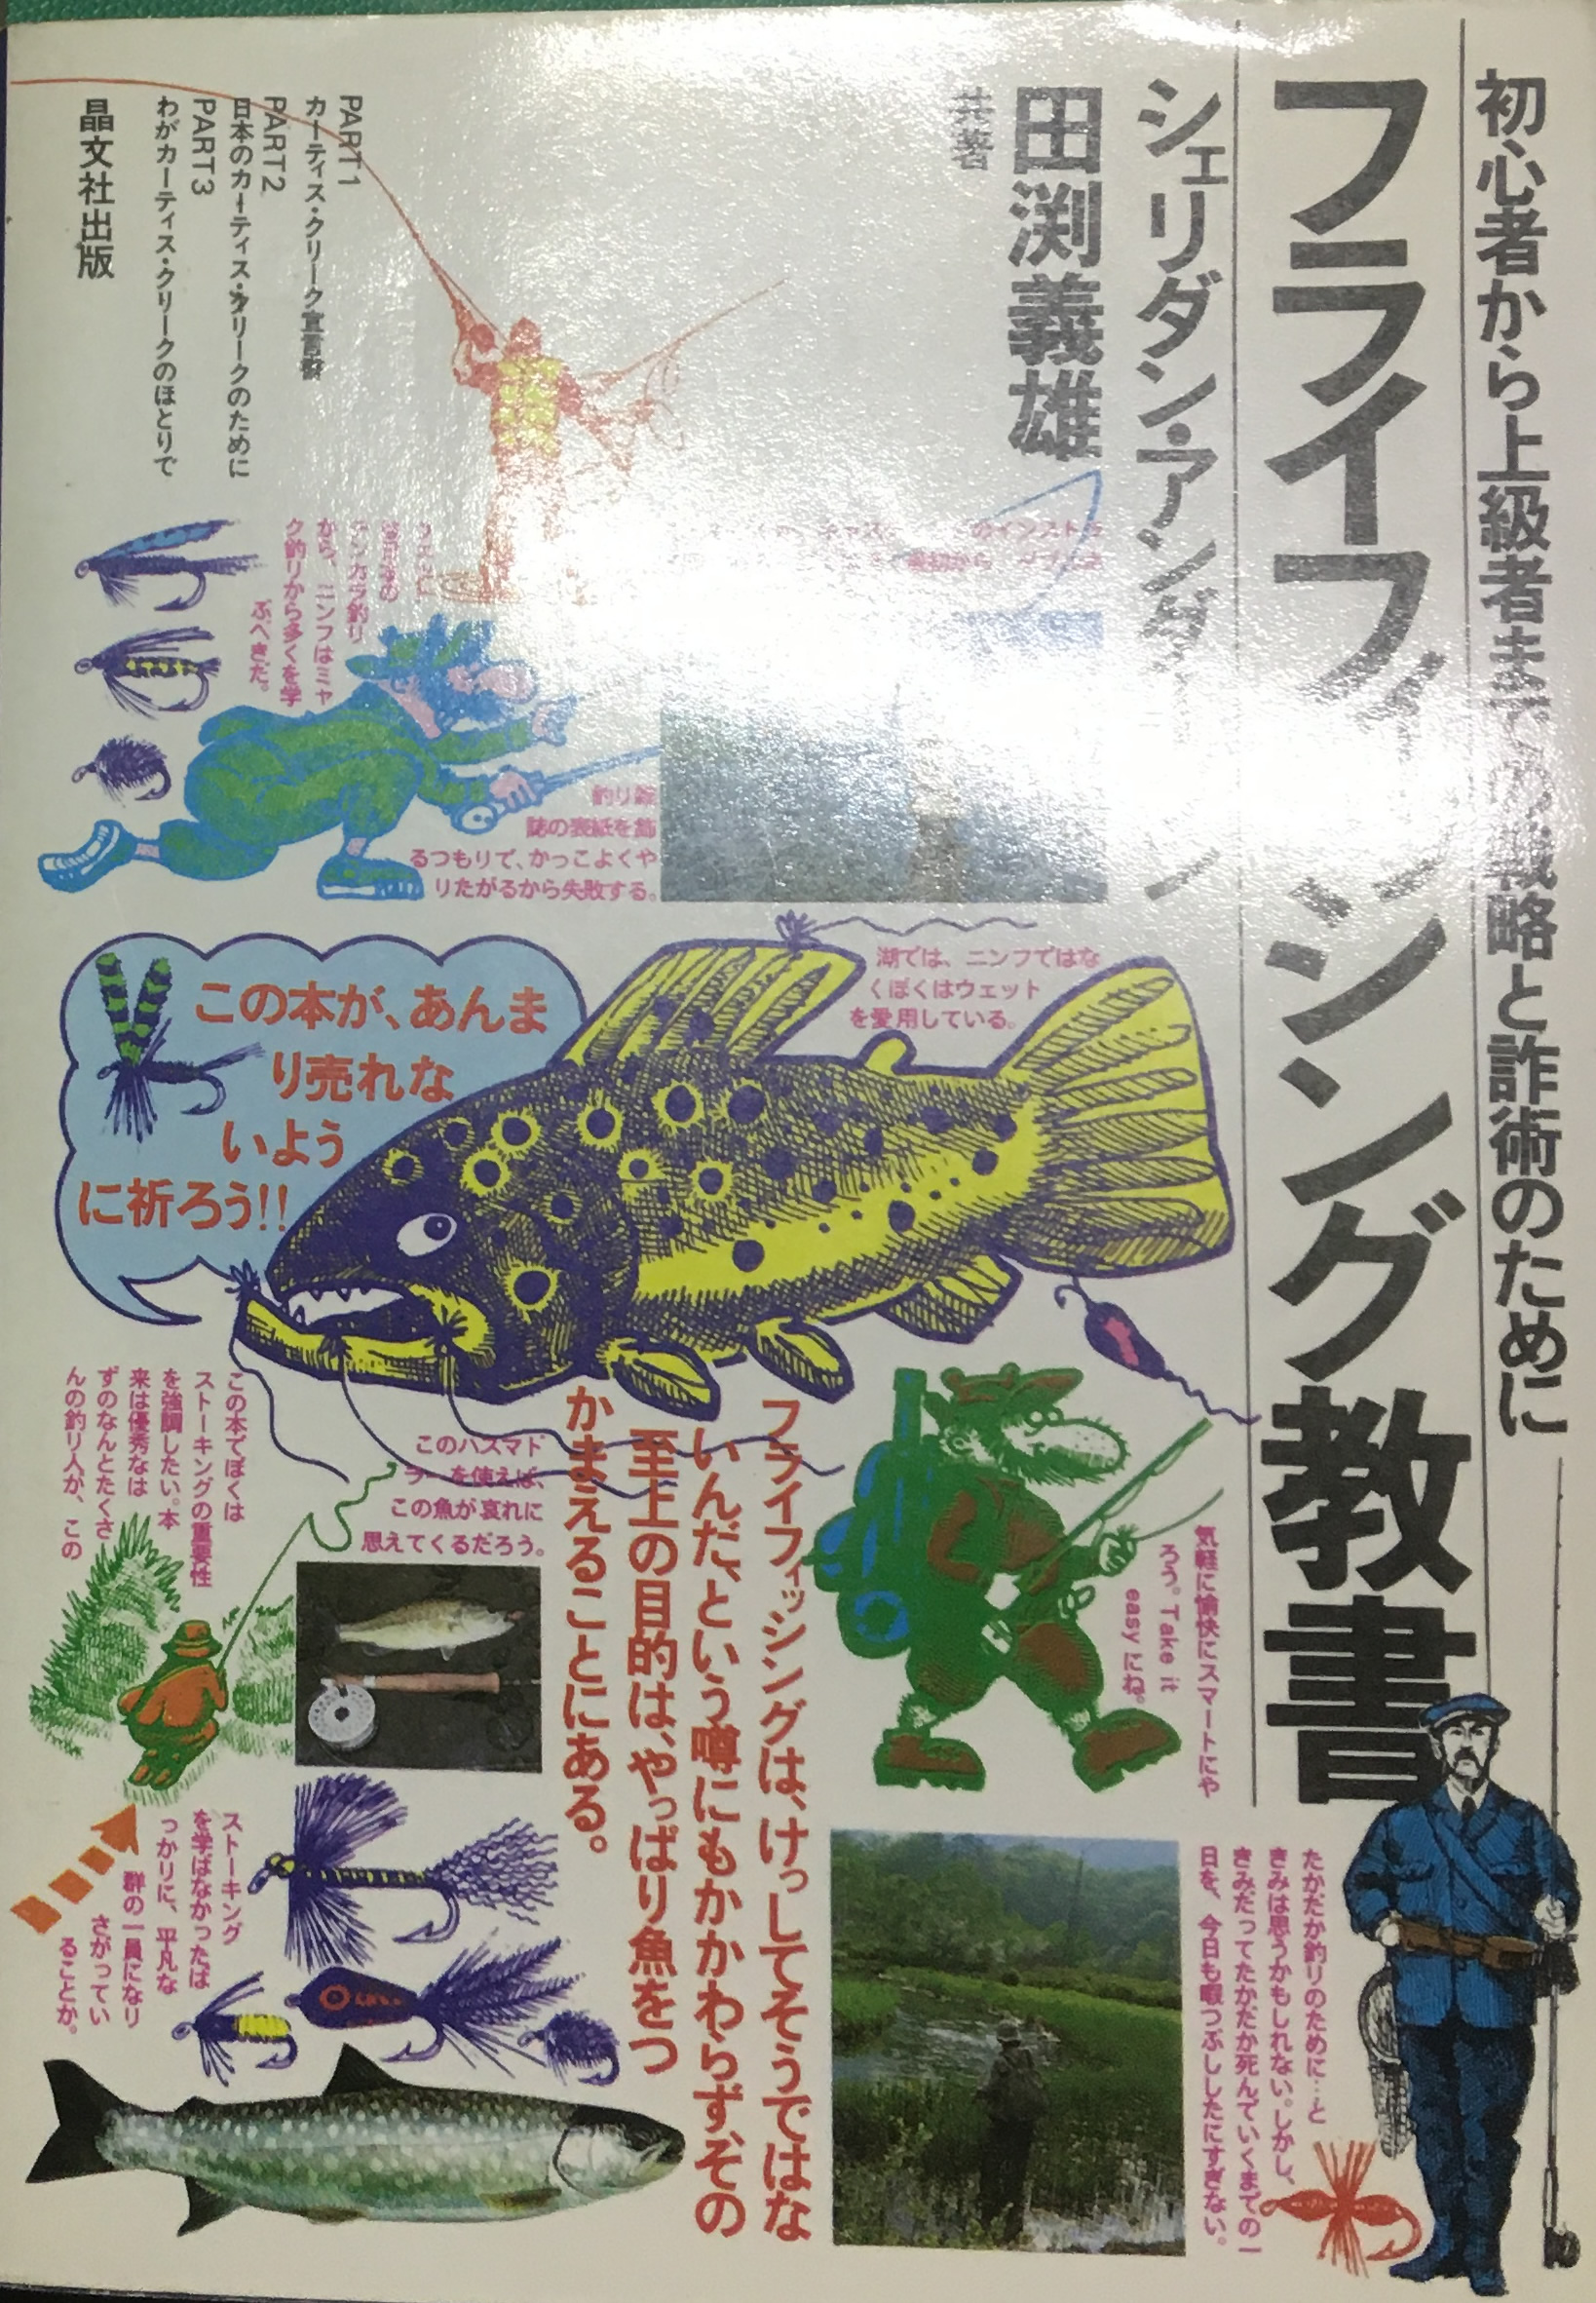 初心者から上級者までの戦略と詐術のために
フライフィッシング教書
シェリダン・アンダーソン
田渕義雄
共著
PART1
カーティス・クリーク宣言
PART2
日本のカーティス・クリークのために
PART3
わがカーティス・クリークのほとりで
晶文社出版
のインストラ
テンカラ釣り
から、ニンフはミャ
ク釣りから多くを学
ぶべきだ。
釣り雑
誌の表紙を飾
るつもりで、かっこよくや
りたがるから失敗する。
湖では、ニンフではな
くぼくはウェット
を愛用している。
この本が、あんま
り売れな
いよう
に祈ろう!!
気軽に愉快にスマートにや
ろう。Take it
easyにね。
フライフィッシングは、けっしてそうではな
いんだ、という噂にもかかわらず、その
至上の目的は、やっぱり魚をつ
かまえることにある。
このハズマト
ラーを使えば、
この魚が哀れに
思えてくるだろう。
この本でぼくは
ストーキングの重要性
を強調したい。本
来は優秀なは
ずのなんとたくさ
んの釣り人が、この
ストーキング
を学ばなかったば
っかりに、平凡な
群の一員になり
さがってい
ることか。
たかだか釣りのために…と
きみは思うかもしれない。しかし、
きみだってたかだか死んでいくまでの一
日を、今日も暇つぶししたにすぎない。